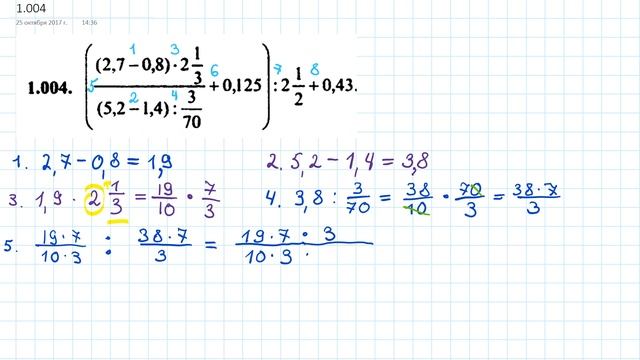 1.004
25 октября 2017 г. 14:36
1.004. ( (2,7 – 0,8) · 2 1/3 / (5,2 – 1,4) : 3/70 + 0,125 ) : 2 1/2 + 0,43.
1 2 3 4 5 6 7 8
1. 2,7 - 0,8 = 1,9 2. 5,2 - 1,4 = 3,8
3. 1,9 · 2 1/3 = 19/10 · 7/3 4. 3,8 : 3/70 = 38/10 · 70/3 = 38·7/3
5. 19·7/10·3 : 38·7/3 = 19·7 · 3/10·3 ·